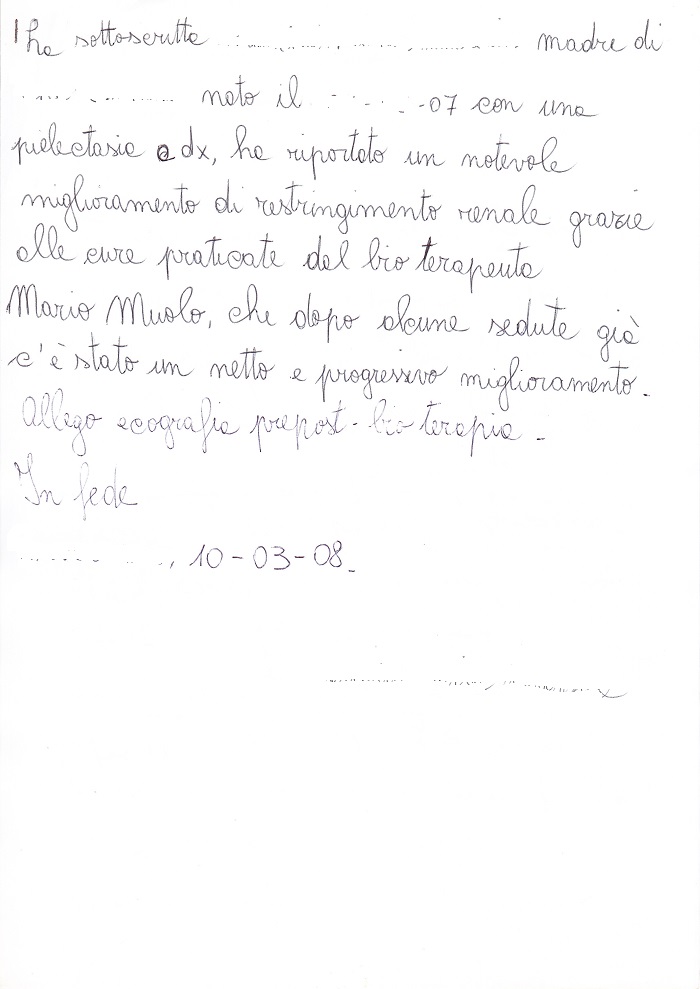 La sottoscritta madre di
nato il -07 con una
pielectasia a dx, ha riportato un notevole
miglioramento di restringimento renale grazie
alle cure praticate dal bio terapeuta
Mario Muolo, che dopo alcune sedute già
c'è stato un netto e progressivo miglioramento.
Allego ecografia prepost-bio terapia -
In fede
, 10-03-08.